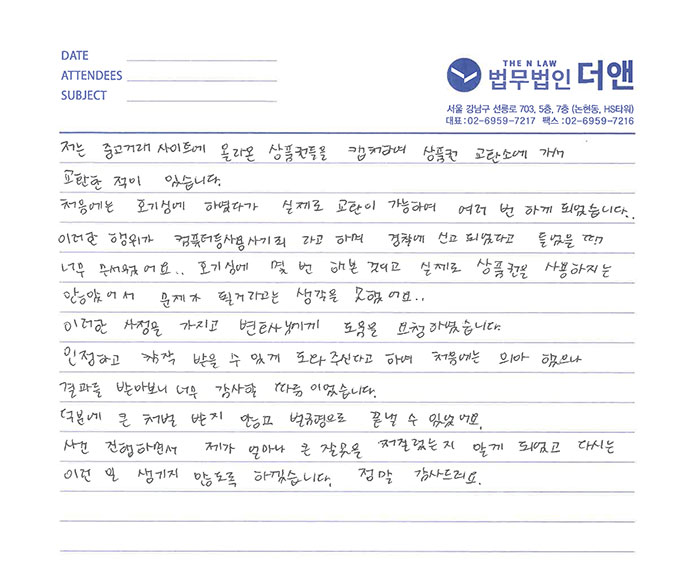 DATE
ATTENDEES
SUBJECT
THE N LAW
법무법인 더앤
서울 강남구 선릉로 703, 5층, 7층 (논현동, HS타워)
대표:02-6959-7217 팩스:02-6959-7216
저는 중고거래 사이트에 올라온 상품권들을 캡처하여 상품권 교환소에 가서
교환한 적이 있습니다.
처음에는 호기심에 하였다가 실제로 교환이 가능하여 여러 번 하게 되었습니다..
이러한 행위가 컴퓨터등사용사기죄 라고 하며 경찰에 신고 되었다고 들었을 때
너무 무서웠어요.. 호기심에 몇 번 해본 것이고 실제로 상품권을 사용하지는
않았어서 문제가 될거라고는 생각을 못했어요..
이러한 사정을 가지고 변호사님에게 도움을 요청하였습니다.
인정하고 감작 받을 수 있게 도와주신다고 하여 처음에는 의아 했으나
결과를 받아보니 너무 감사할 따름이었습니다.
덕분에 큰 처벌 받지 않고 벌금형으로 끝낼 수 있었어요.
사건 진행하면서 제가 얼마나 큰 잘못을 저질렀는지 알게 되었고 다시는
이런 일 생기지 않도록 하겠습니다. 정말 감사드려요.